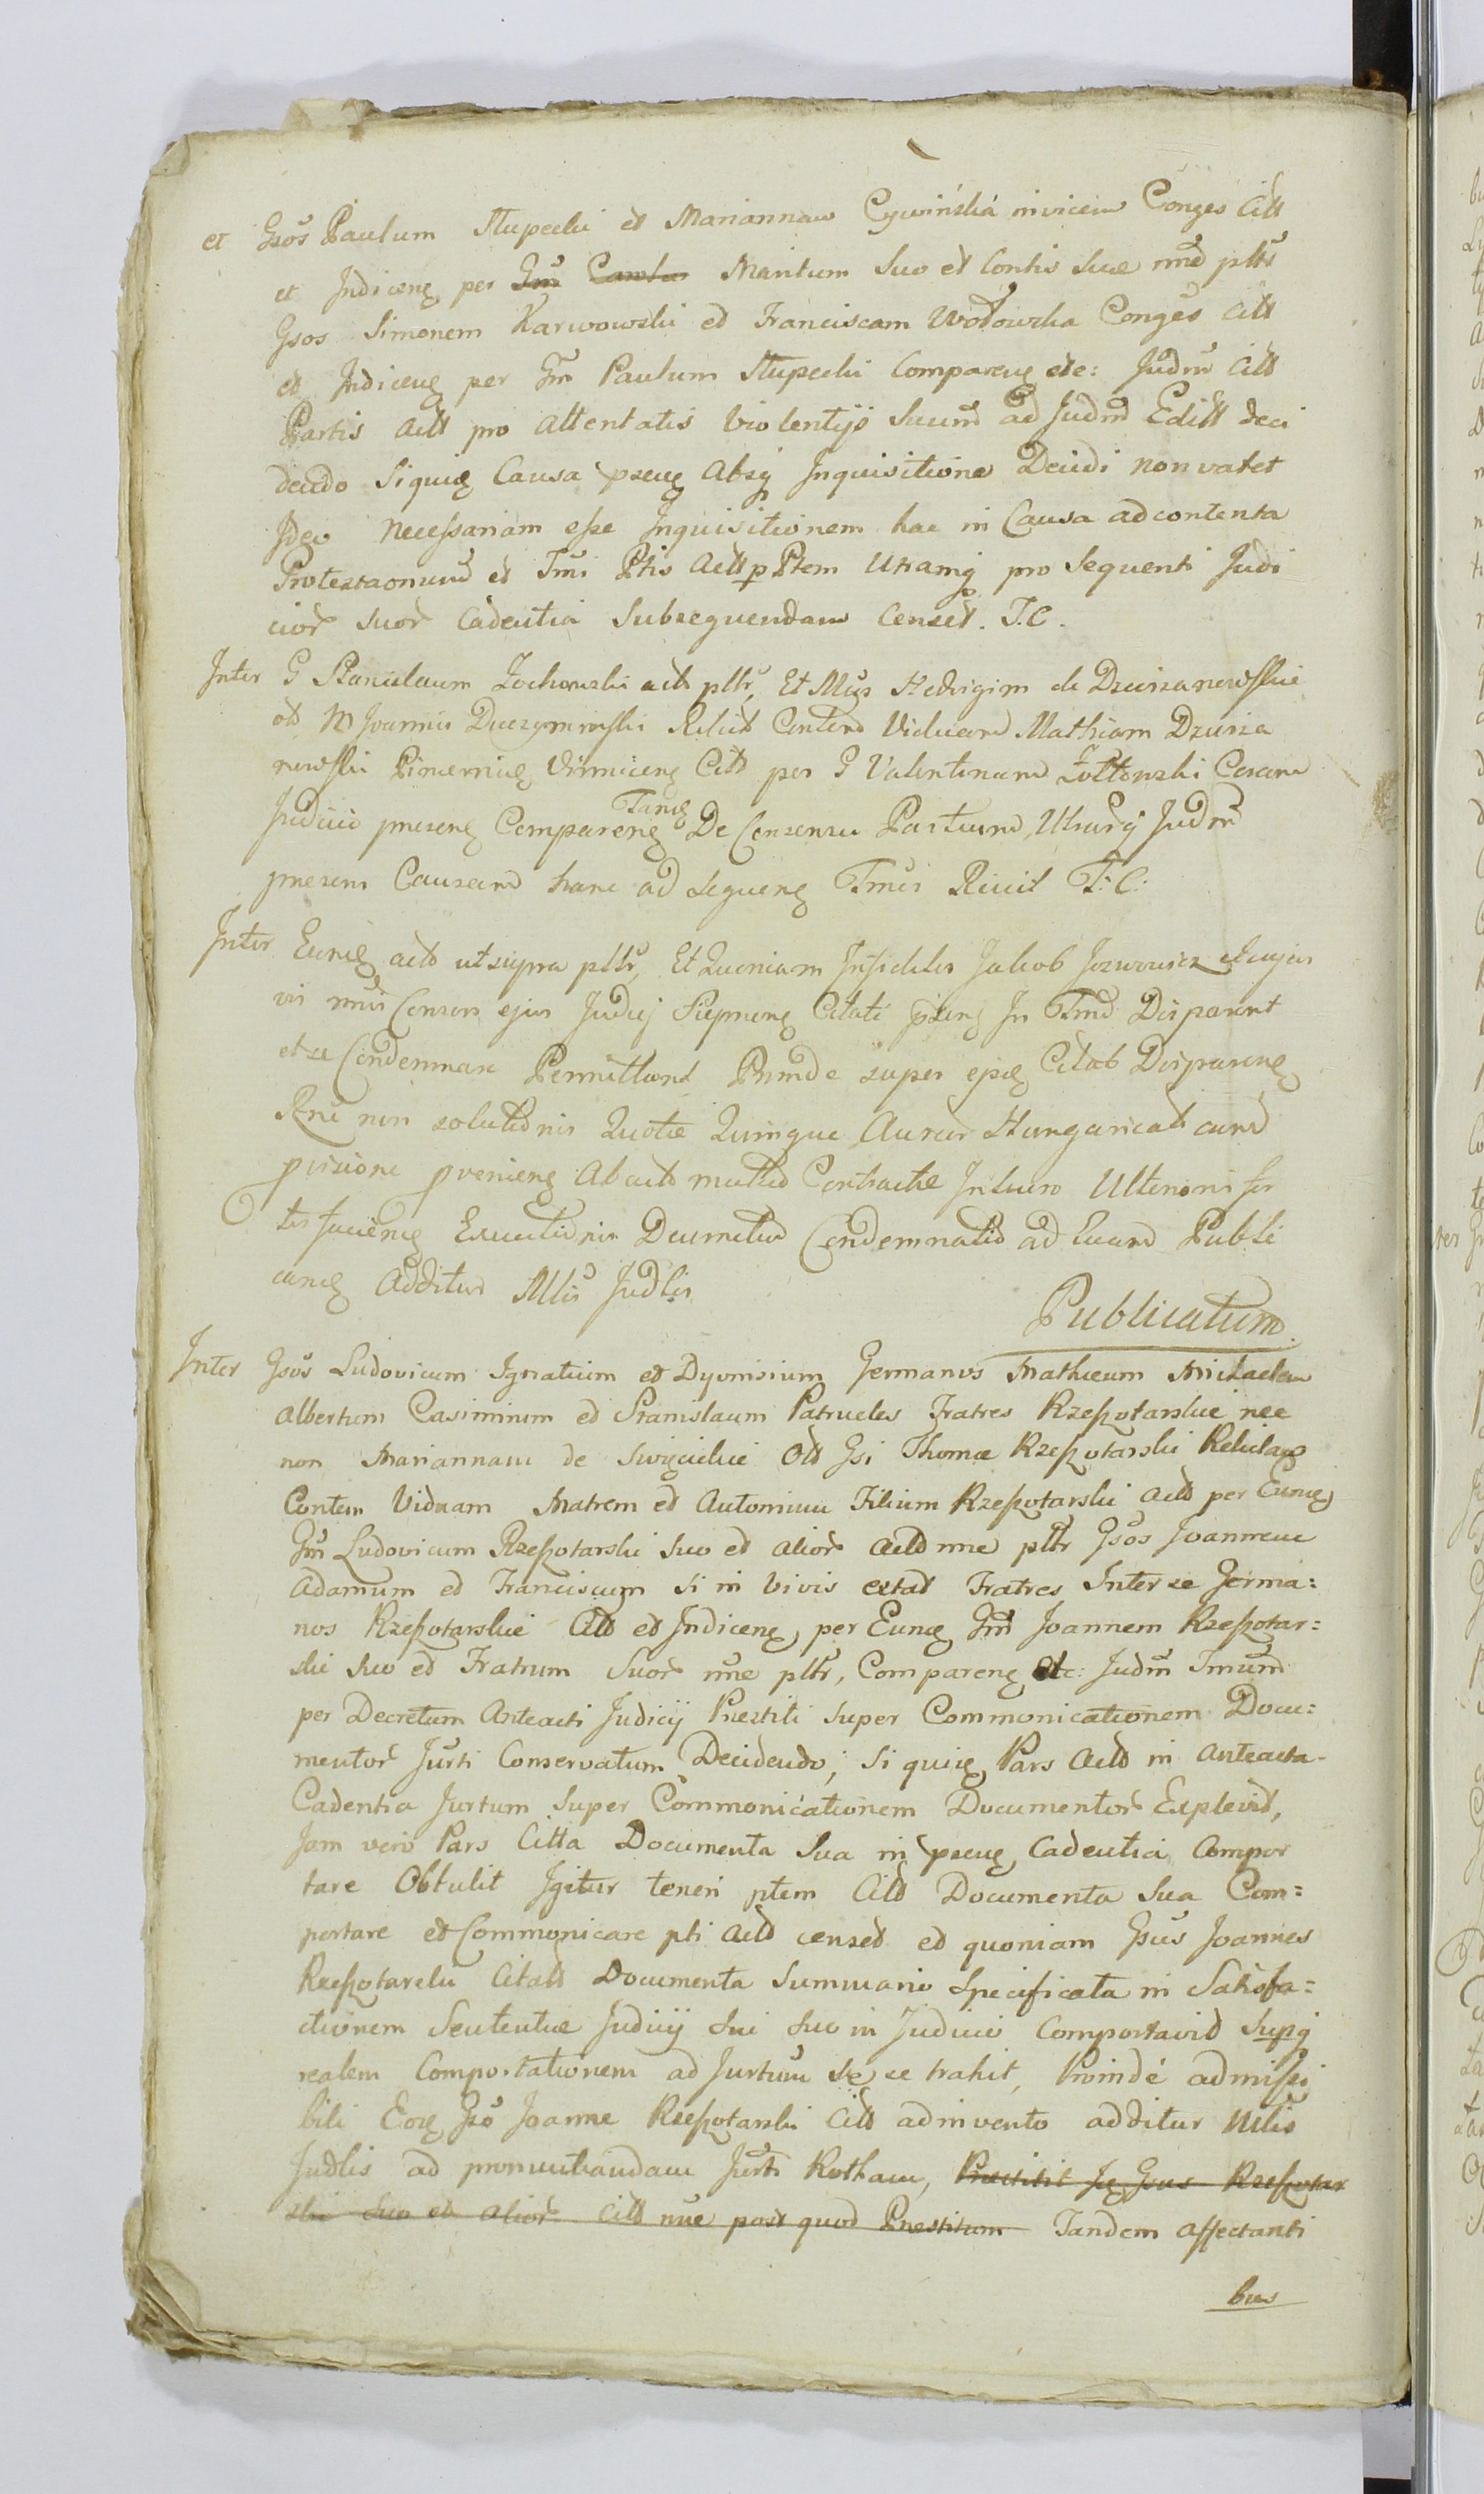 et Gsos Paulum Słupecki et Mariannam Cywińská invicem Conges Citt
et Indiceng per Gm Carolu Maritum Suo et Contis Suæ nne plttr
Gsos Simonem Karwowski et Franciscam Wodowska Conges Citt
et Indiceng per Gm Paulum Słupecki Compareng etc: Judm Citt
Partis Actt pro attentatis violentijs Suum ad Judm Editt deci
dendo Siquig Causa pseng Absq Inquisitione Decidi non valet
Ideo Necessariam esse Inquisitionem hac in Causa ad contenta
Protestaonum et Tmi Ptis Actt p Ptem Utramq pro Sequenti Judi
cior Suor Cadentia Subsequendam Censet. T.C.
Inter G Stanislaum Zochowski actt pltr, Et Mgs Hedvigim de Dzierzanowskie
ott M Joannis Duczyminski Relict Contem Viduam Mathiam Dzierza
nowski Pincernig Vinniceng Citt per G Valentinum Zołtowski Coram
Judicio preseng Compareng Tang De Consensu Partium Utrarq Judm
presens Causam hanc ad sequeng Tmis Reicit T:C:
Inter Eung actt ut supra pltr, Et Quoniam Infideles Jakob Jozwowicz et
vir mis Consors ejus Judej Siepmeng Citati pseng In Tmo Disparent
et se Condemnare Permittunt Proinde super epig Citatt Dispareng
Rne non solutionis Quotæ Quinque Aureor Hungaricatt cum
pvisione pvenieng Ab actt mutuo Contractæ In luero Ulterioris for
tis facieng Executionis Decretum Condemnatio ad Euard Publi
cang Additur Mlis Judlis
Publicatum.
Inter Gsos Ludovicum Ignatium et Dyonisium Germanos Mathæum Michaelem
Albertum Casimirum et Stanislaum Patrueles Fratres Rzeszotarskie nec
non Mariannam de Święcickie Ott Gsi Thomæ Rzeszotarski Relictam
Contem Viduam Matrem et Antonium Filium Rzeszotarski Actt per Eung
Gm Ludovicum Rzeszotarski Suo et alior Actt nne pltr Gsos Joannem
Adamum et Franciscum Si in Vivis extat Fratres Inter se Germa:
nos Rzeszotarskie Citt et Indiceng, per Eung Gm Joannem Rzeszotar:
ski Suo et Fratrum Suor nne pltr, Compareng etc: Judm Tmum
per Decretum Anteacti Judicij Præstiti Super Commonicationem Docu:
mentor Jurti Conservatum Decidendo; Si quig Pars Actt in anteacta
Cadentia Jurtum Super Commonicationem Documentor Explevit,
Jam vero Pars Citta Documenta Sua in pseng Cadentia Compor
tare Obtulit Igitur teneri ptem Citt Documenta Sua Com:
portare et Commonicare pti Actt censet et quoniam Gsus Joannes
Rzeszotarski Citatt Documenta Summario Specificata in Satisfa:
ctionem Sententiæ Judicij Sui Suo in Judicio Comportavit Supq
realem Comportationem ad Jurtum Se se trahit, Proinde admissi
bili Eog Gso Joanne Rzeszotarski Citt adinvento additur Mlis
Judlis ad pronuntiandam Jurti Rotham, Præstitit Jg Gsus Rzeszotar
ski Suo et alior Citt nne post quod Præstitum Tandem affectanti
bus